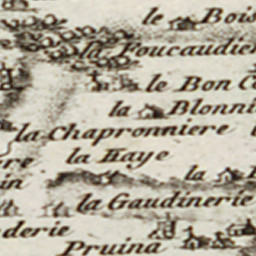 le Bois
la Foucaudie
le Bon C
la Blonni
la Chapronniere
la Haye
la
la Gaudinerie
derie
Pruina